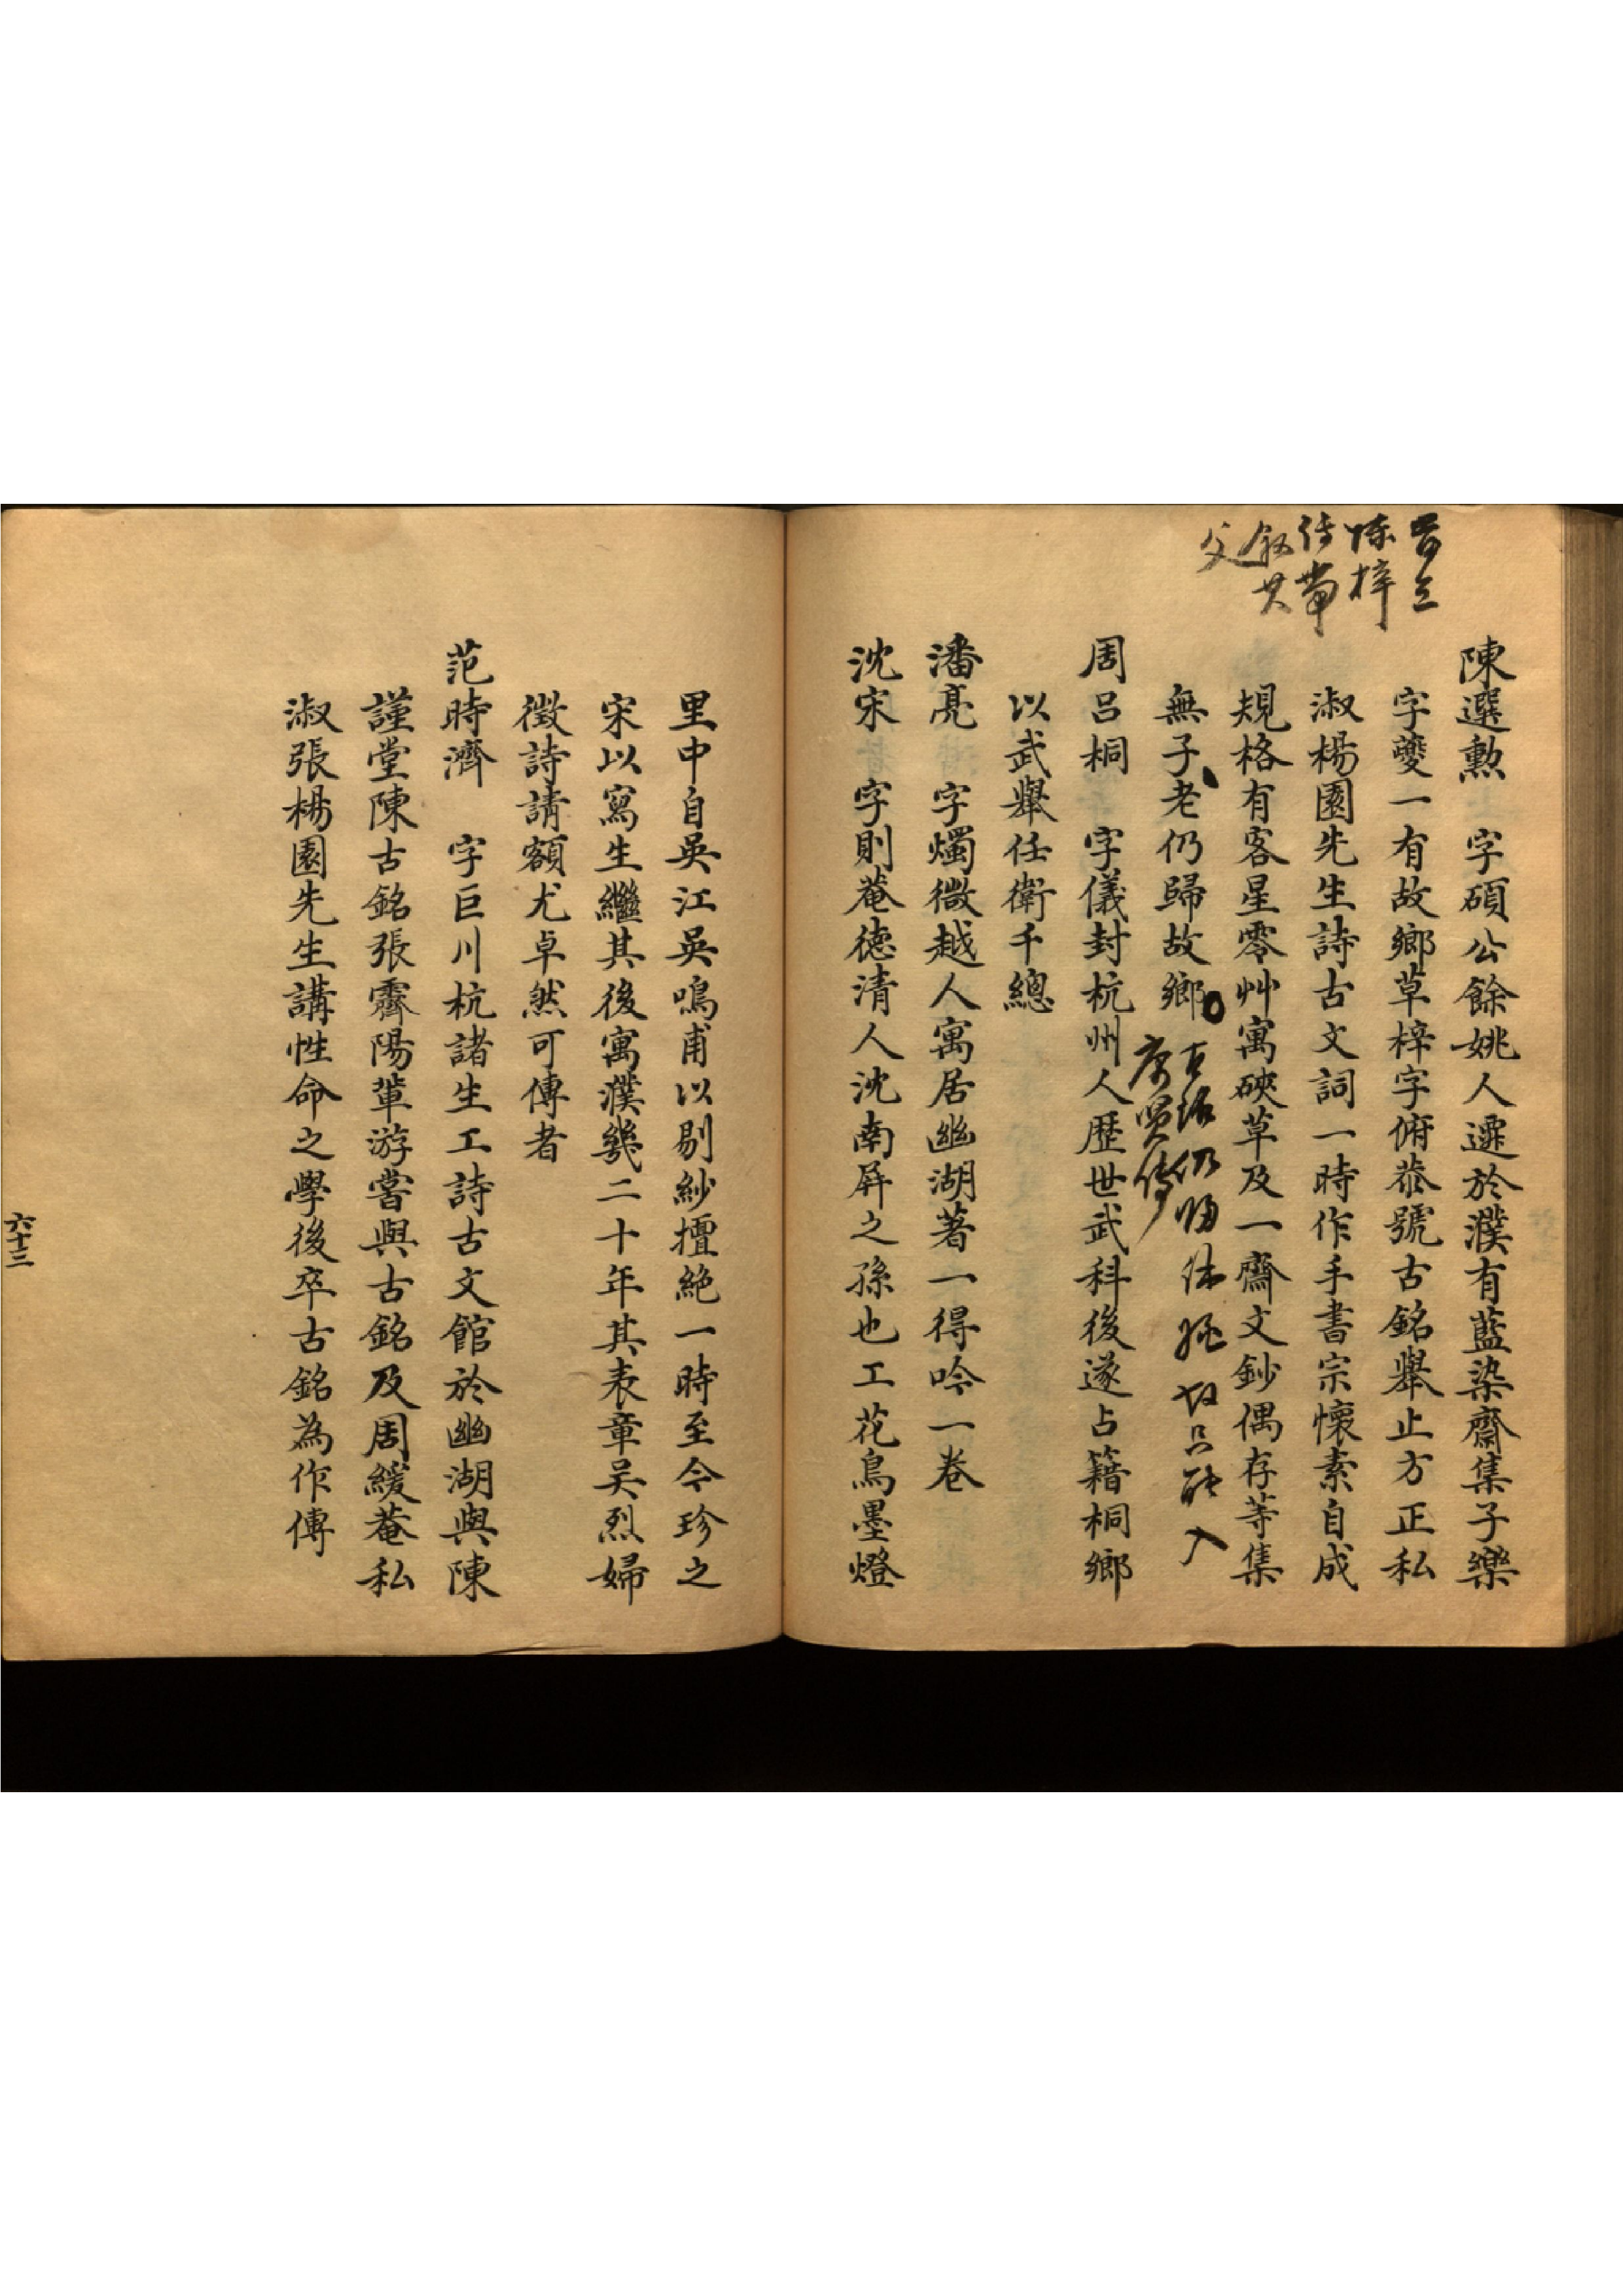 陳梓
傳帶
敘其
父
陳選勲　字碩公餘姚人遷於濮有藍染齋集子樂
字夔一有故鄉草梓字俯恭號古銘舉止方正私
淑楊園先生詩古文詞一時作手書宗懷素自成
規格有客星零艸寓硤草及一齋文鈔偶存等集
無子老仍歸故鄉
仍歸
入
周呂桐　字儀封杭州人歷世武科後遂占籍桐鄉
以武舉任衛千總
潘亮　字燭微越人寓居幽湖著一得吟一卷
沈宋　字則菴德清人沈南屏之孫也工花鳥墨燈
里中自吳江吳鳴甫以剔紗擅絕一時至今珍之
宋以寫生繼其後寓濮幾二十年其表章吳烈婦
徵詩請額尤卓然可傳者
范時濟　字巨川杭諸生工詩古文館於幽湖與陳
謹堂陳古銘張霽陽輩游嘗與古銘及周緩菴私
淑張楊園先生講性命之學後卒古銘為作傳
六十三